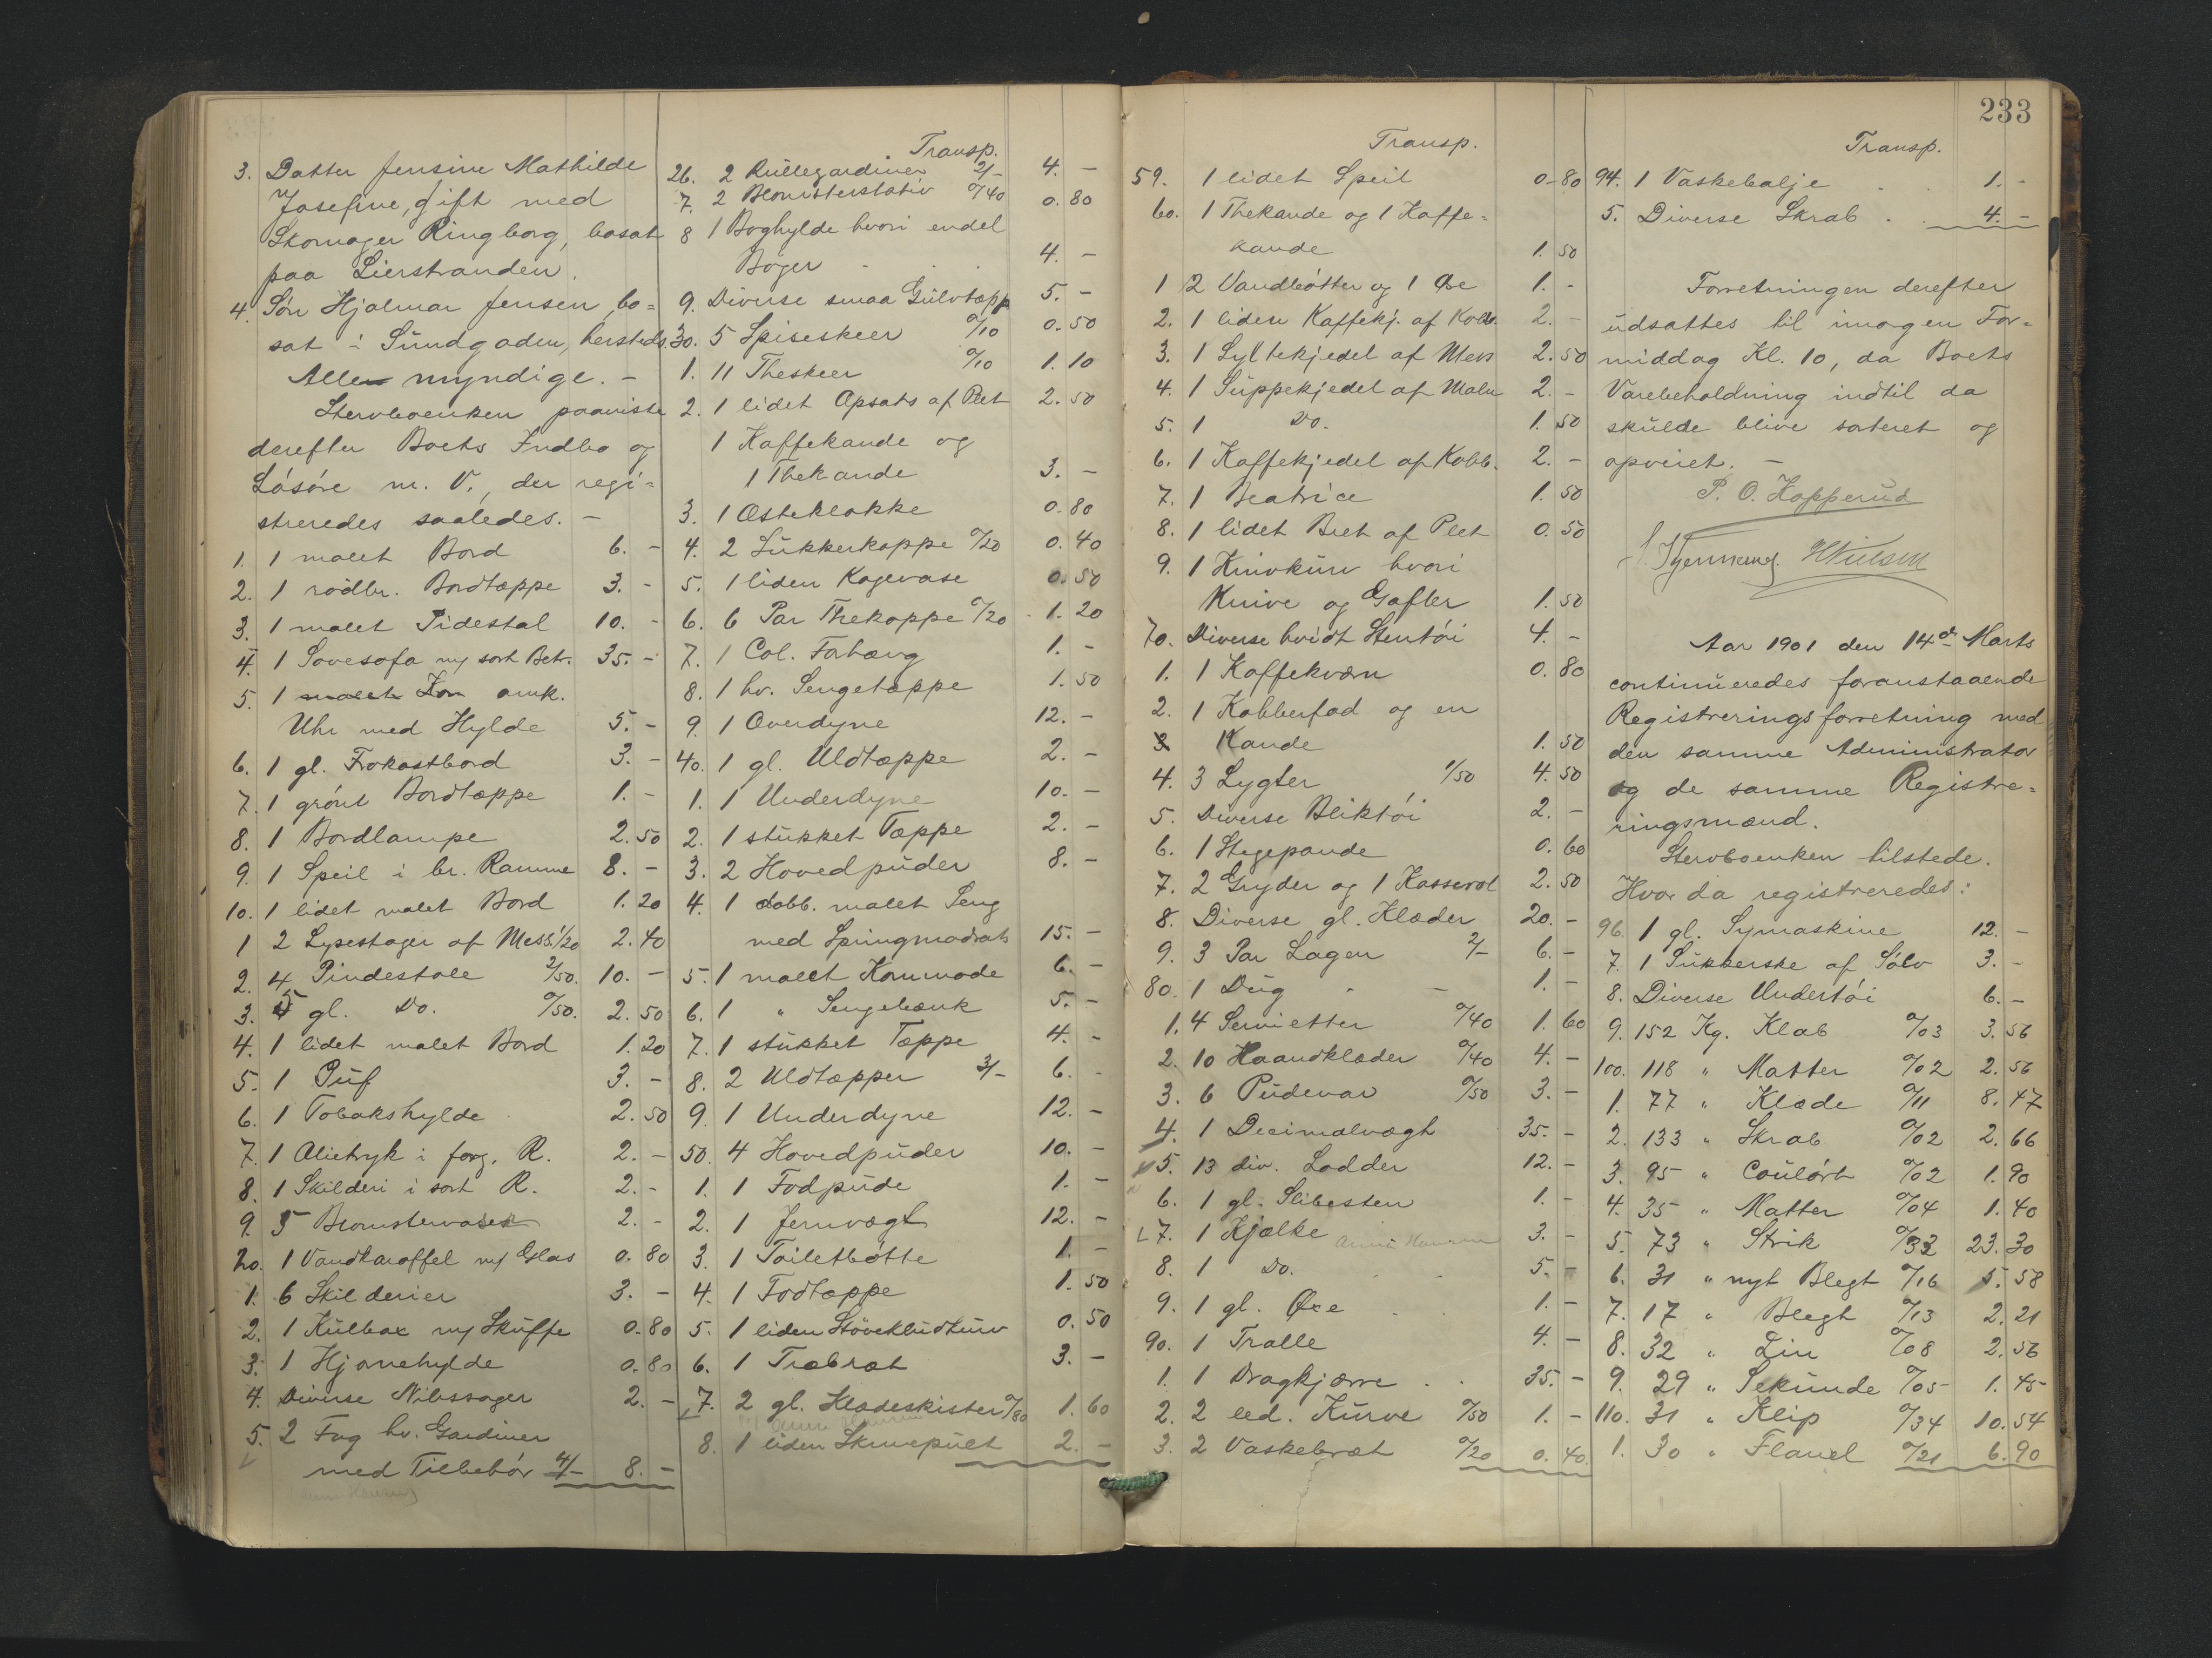 3. Datter Jensine Mathilde
Josefine, gift med
Skomager Ringborg, bosat
paa Lierstranden.
4. Søn Hjalmar Jensen, bo=
sat i Sündgaden, hersteds.
Alle myndige. –
Stervboenken paaviste
derefter Boets Indbo og
Løsøre m. V., der regi=
streredes saaledes. –
1. 1 malet Bord 6. –
2. 1 rødbr. Bordtæppe 3. –
3. 1 malet Pidestal 10. –
4. 1 Sovesofa m/ sort Betr. 35. –
5. 1 malet Kom amk.
Uhr med Hylde 5. –
6. 1 gl. Frokostbord 3. –
7. 1 grønt Bordtæppe 1. –
8. 1 Bordlampe 2. 50
9. 1 Speil i br. Ramme 8. –
10. 1 lidet malet Bord 1. 20
1 2 Lysestager af Mess. 1/20 2. 40
2. 4 Pindestole 2/50. 10. –
3. 5 gl. Do. 0/50. 2. 50
4. 1 lidet malet Bord 1. 20
5. 1 Püf 3. –
6. 1 Tobakshylde 2. 50
7. 1 Olietryk i forg. R. 2. –
8. 1 Skilderi i sort R. 2. –
9. 5 Blomstervaser 2. –
20. 1 Vandkaraffel m/ Glas 0. 80
1. 6 Skilderier 3. –
2. 1 Külbox m/ Sküffe 0. 80
3. 1 Hjørnehylde 0. 80
4. Diverse Nibssager 2. –
5. 2 Fag hv. Gardiner
med Tilbehør 4/– 8. –
Transp.
26. 2 Rüllegardiner 2/– 4. –
7. 2 Blomsterstativ 0/40 0. 80
8 1 Boghylde hvori endel
Bøger 4. –
9. Diverse smaa Gülvtæpp 5. –
30. 5 Spiseskeer 0/10 0. 50
1. 11 Theskeer 0/10 1. 10
2. 1 lidet Opsats af Plet 2. 50
1 Kaffekande og
1 Thekande 3. –
3. 1 Osteklokke 0. 80
4. 2 Sükkerkoppe 0/20 0. 40
5. 1 liden Kagevase 0. 50
6. 6 Par Thekoppe 0/20 1. 20
7. 1 Col. Forhæng 1. –
8. 1 hv. Sengetæppe 1. 50
9. 1 Overdyne 12. –
40. 1 gl. Uldtæppe 2. –
1. 1 Underdyne 10. –
2. 1 stükket Tæppe 2. –
3. 2 Hovedpüder 8. –
4. 1 dobb. malet Seng
med Springmadrats 15. –
5. 1 malet Kommode 6. –
6. 1 " Sengebænk 5. –
7. 1 stükket Tæppe 4. –
8. 2 Uldtæpper 3/– 6. –
9. 1 Underdyne 12. –
50. 4 Hovedpüder 10. –
1. 1 Fodpüde 1. –
2. 1 Jernvægt 12. –
3. 1 Toiletbøtte 1. –
4. 1 Fodtæppe 1. 50
5. 1 liden Støvekludkurv 0. 50
6. 1 Træbræt 3. –
7. 2 gl. Klædeskister 0/80 1. 60
8. 1 liden Skrivepült 2. –
233
Transp.
59. 1 lidet Speil 0. 80
60. 1 Thekande og 1 Kaffe=
kande 1. 50
1 2 Vandbøtter og 1 Øse 1. –
2. 1 liden Kaffekj. af Kobb. 2. –
3. 1 Syltekjedel af Mess 2. 50
4. 1 Süppekjedel af Malm 2. –
5. 1 Do. 1. 50
6. 1 Kaffekjedel af Kobb. 2. –
7. 1 Beatrice 1. 50
8. 1 lidet Bret af Plet 0. 50
9. 1 Knivkürv hvori
Knive og Gafler 1. 50
70. Diverse hvidt Stentøi 4. –
1. 1 Kaffekværn 0. 80
2. 1 Kobberfad og en
3 Kande 1. 50
4. 3 Lygter 1/50 4. 50
5. Diverse Bliktøi 2. –
6. 1 Stegepande 0. 60
7. 2 Gryder og 1 Kasserol 2. 50
8. Diverse gl. Klæder 20. –
9. 3 Par Lagen 2/– 6. –
80. 1 Düg 1. –
1. 4 Servietter 0/40 1. 60
2. 10 Haandklæder 0/40 4. –
3. 6 Püdevar 0/50 3. –
4. 1 Decimalvægt 35. –
5. 13 div. Lodder 12. –
6. 1 gl. Slibesten 1. –
7. 1 Kjælke 3. –
8. 1 Do. 5. –
9. 1 gl. Øxe 1. –
90. 1 Tralle 4. –
1. 1 Dragkjærre 35. –
2. 2 led. Kürve 0/50 1. –
3. 2 Vaskebræt 0/20 0. 40.
Transp.
94. 1 Vaskebalje 1. –
5. Diverse Skrab 4. –
Forretningen derefter
udsattes til imorgen For=
middag Kl. 10, da Boets
Varebeholdning indtil da
skülde blive sorteret og
opveiet. –
P. O. Kopperud
HNielsen
Aar 1901 den 14de Marts
continüeredes foranstaaende
Registreringsforretning med
den samme Administrator
og de samme Registre=
ringsmænd.
Stervboenken tilstede.
Hvor da registreredes:
96. 1 gl. Symaskine 12. –
7. 1 Sükkerske af Sølv 3. –
8. Diverse Undertøi 6. –
9. 152 Kg. Klab 0/03 3. 56
100. 118 " Matter 0/02 2. 56
1. 77 " Klæde 0/11 8. 47
2. 133 " Skrab 0/02 2. 66
3. 95 " Coulørt 0/02 1. 90
4. 35 " Matter 0/04 1. 40
5. 73 " Strik 0/32 23. 30
6. 31 " nyt Blegt 0/16 5. 58
7. 17 " Blegt 0/13 2. 21
8. 32 " Lin 0/08 2. 56
9. 29 " Sekünde 0/05 1. 45
110. 31 " Klip 0/34 10. 54
1. 30 " Flanel 0/21 6. 90